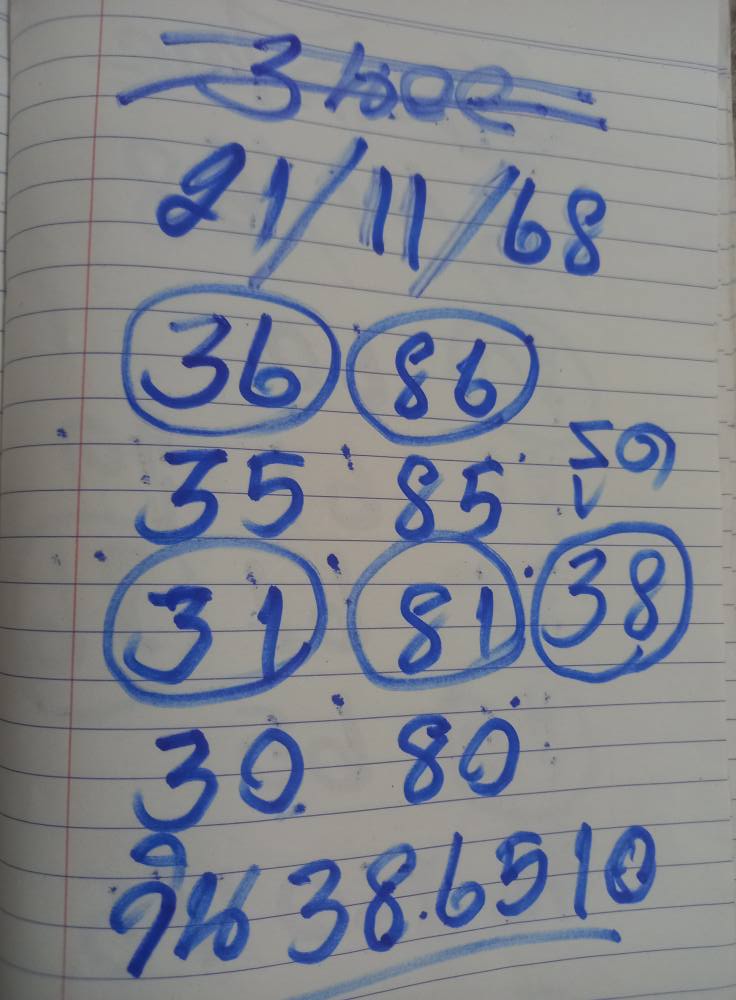 3
21/11/68
36 86
35 85 รูด
31 81 38
30 80
วิน 38.6510